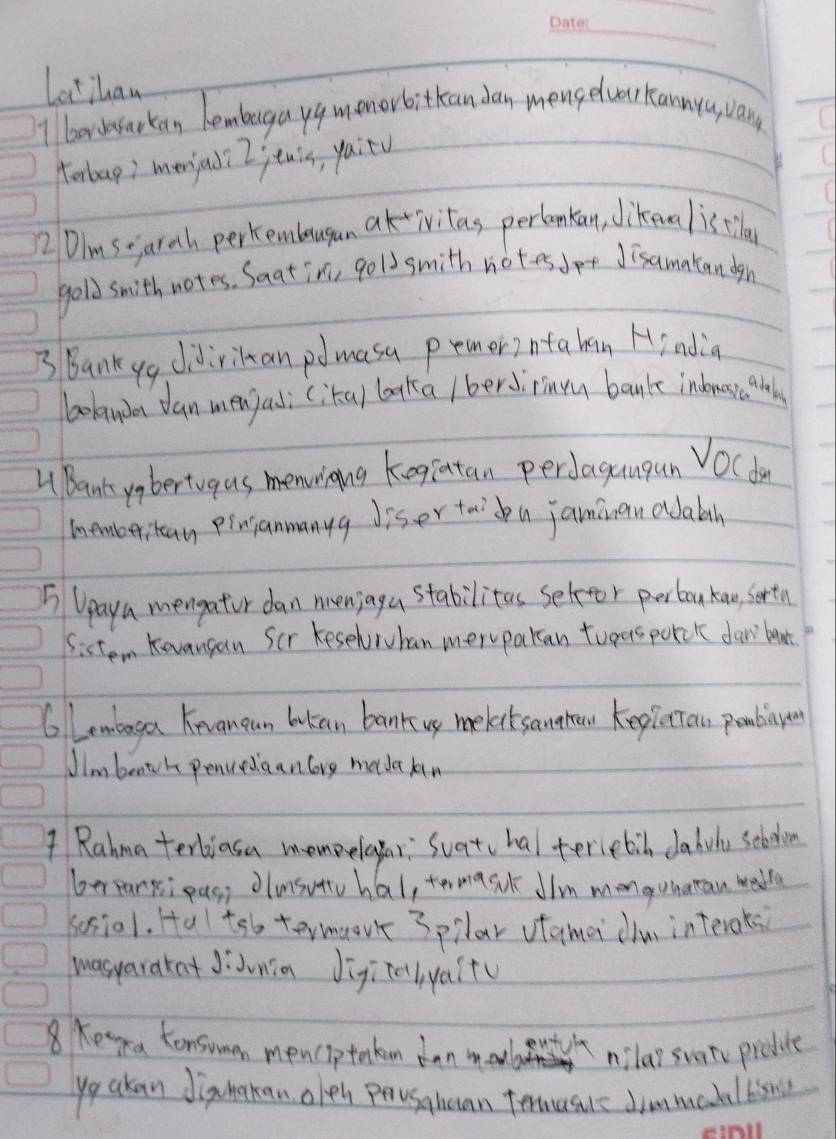 Date:
Latihan
1 berdasarkan lembaga yg menerbitkan dan mengeluarkannya, uang
terbagi menjadi 2 jenis, yaitu
2 Dlm sejarah perkembangan aktivitas perbankan, dikenal istilah
gold smith notes. Saat ini, gold smith notes dpt disamakan dgn
3 Bank yg didirikan pd masa pemerintahan Hindia
belanda dan menjadi cikal bakal berdirinya bank indonesia adalah
4 Bank yg bertugas menunjang kegiatan perdagangan VOC dan
memberikan pinjaman yg disertai dgn jaminan adalah
5 Upaya mengatur dan menjaga stabilitas sektor perbankan, serta
sistem keuangan scr keseluruhan merupakan tugas pokok dari bank
6 Lembaga keuangan bukan bank yg melaksanakan kegiatan pembiayaan
dlm bentuk penyediaan brg modal dan
7 Rahma terbiasa mempelajari suatu hal terlebih dahulu sebelum
berpartisipasi dlm suatu hal, termasuk dlm menggunakan media
sosial. Hal tsb termasuk 3 pilar utama dlm interaksi
masyarakat didunia digital, yaitu
8 Ketika konsumen menciptakan dan membentuk nilai suatu produk
yg akan digunakan oleh perusahaan termasuk dlm modal bisnis
SIDU